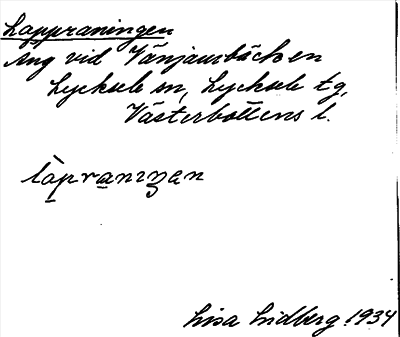 Lappraningen
Äng vid Vänjaurbäcken
Lycksele sn, Lycksele tg,
Västerbottens l.
làpranıŋən
Lisa Lidberg 1934